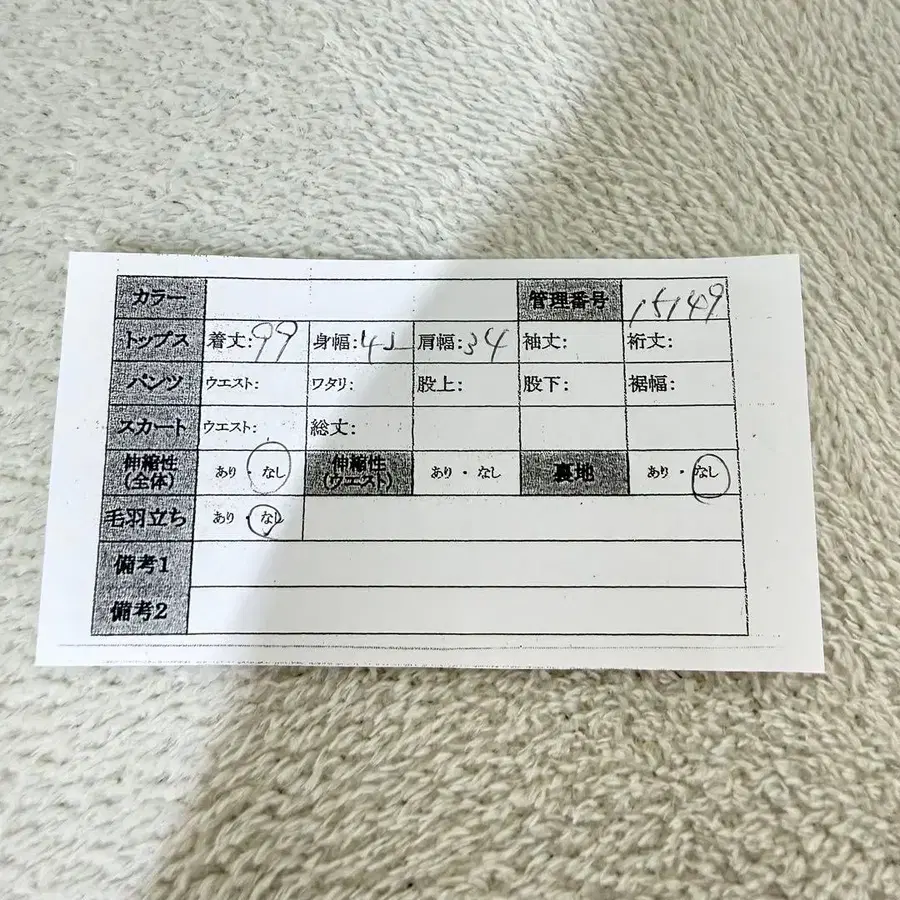 カラー 管理番号 15149
トップス 着丈:99 身幅: 肩幅:34 袖丈: 裄丈:
パンツ ウエスト: ワタリ: 股上: 股下: 裾幅:
スカート ウエスト: 総丈:
伸縮性 (全体) あり・なし 伸縮性 (ウエスト) あり・なし 裏地 あり・なし
毛羽立ち あり・なし
備考1
備考2